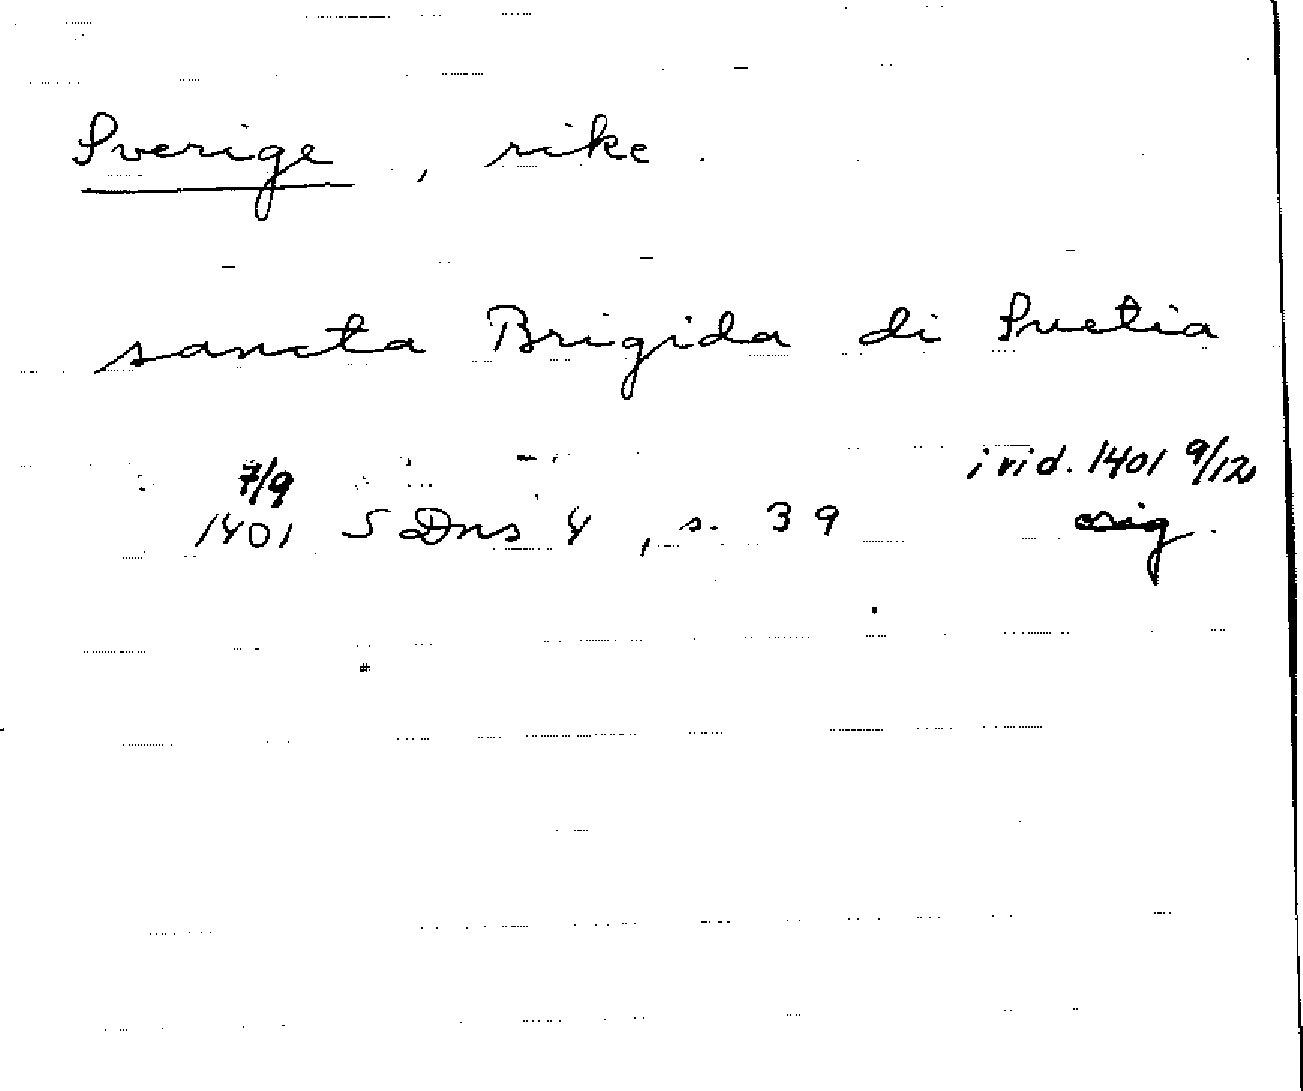 Sverige, rike.
sancta Brigida di Suetia
7/9 i vid. 1401 9/12
1401 SDns 4, s. 39 orig.